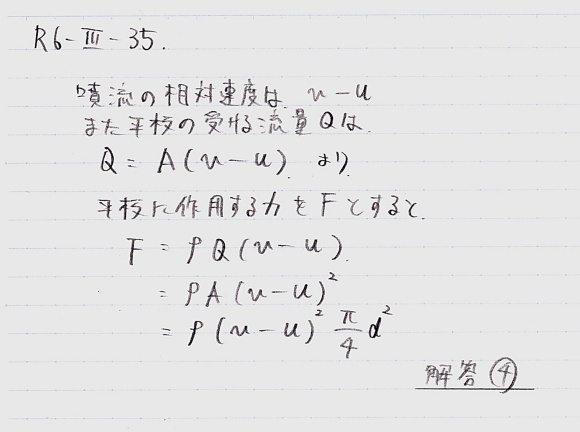 R6-Ⅲ-35.
噴流の相対速度は v-u
また平板の受ける流量Qは
Q = A(v-u) より
平板に作用する力をFとすると.
F = ρQ(v-u)
= ρA(v-u)²
= ρ(v-u)² π/4 d²
解答 ④